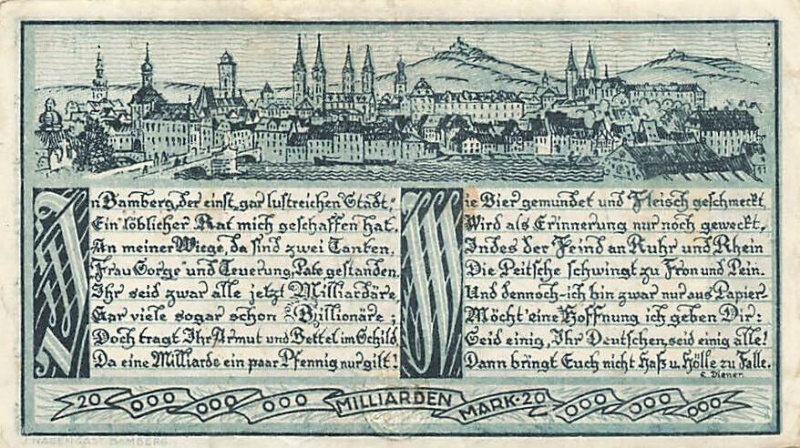 In Bamberg, der einst gar lustreichen Stadt,
Ein löblicher Rat mich geschaffen hat.
An meiner Wiege, da sind zwei Tanten,
Frau Sorge und Teuerung, Pate gestanden.
Ihr seid zwar alle jetzt Milliardäre,
Gar viele sogar schon Billionäre;
Doch tragt Ihr Armut und Bettel im Schild,
Da eine Milliarde ein paar Pfennig nur gilt!
Wie Bier gemundet und Fleisch geschmeckt
Wird als Erinnerung nur noch geweckt,
Indes der Feind an Ruhr und Rhein
Die Peitsche schwingt zu Fron und Pein.
Und dennoch-ich bin zwar nur aus Papier-
Möcht' eine Hoffnung ich geben Dir:
Seid einig, Ihr Deutschen, seid einig alle!
Dann bringt Euch nicht Haß u. Hölle zu Falle.
E. Diener.
20 000 000 000 MILLIARDEN MARK·20 000 000 000
J. NAGENGAST BAMBERG